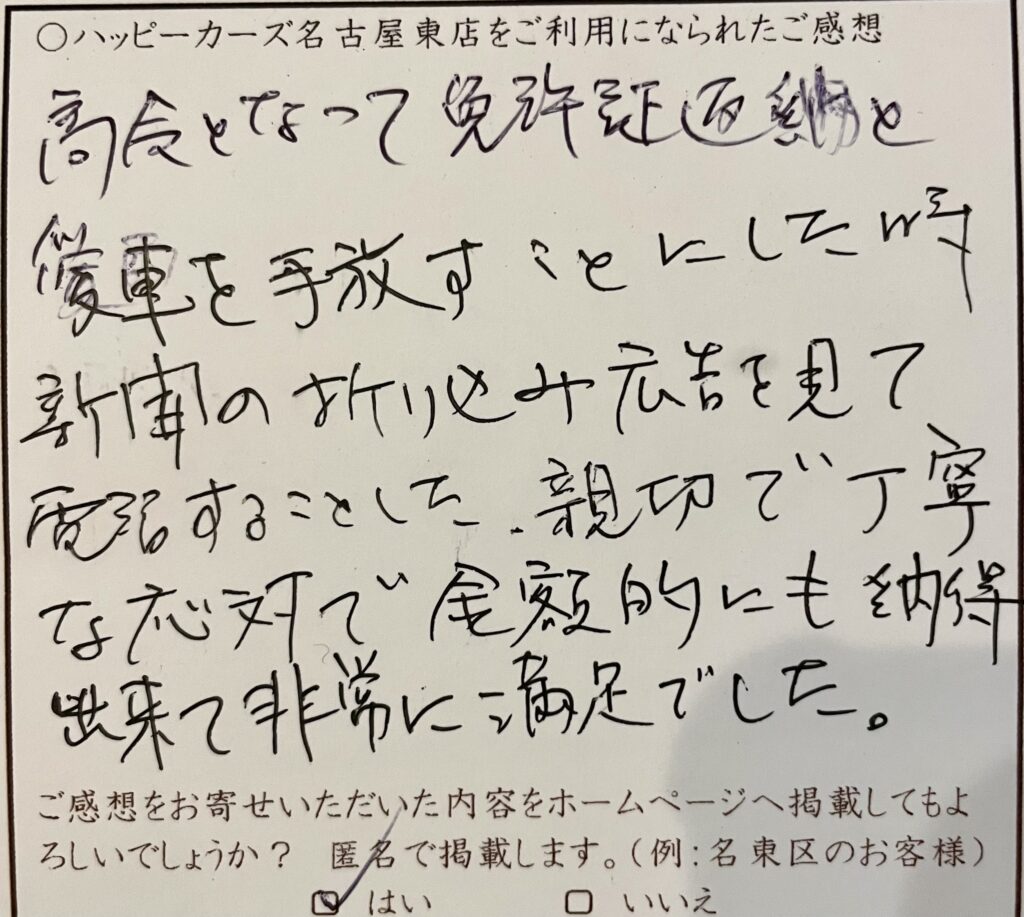 ○ハッピーカーズ名古屋東店をご利用になられたご感想
高令となって免許証返納と
愛車を手放すことにした時
新聞の折り込み広告を見て
電話することした、親切で丁寧
な応対で金額的にも納得
出来て非常に満足でした。
ご感想をお寄せいただいた内容をホームページへ掲載してもよ
ろしいでしょうか? 匿名で掲載します。(例:名東区のお客様)
☑ はい □ いいえ